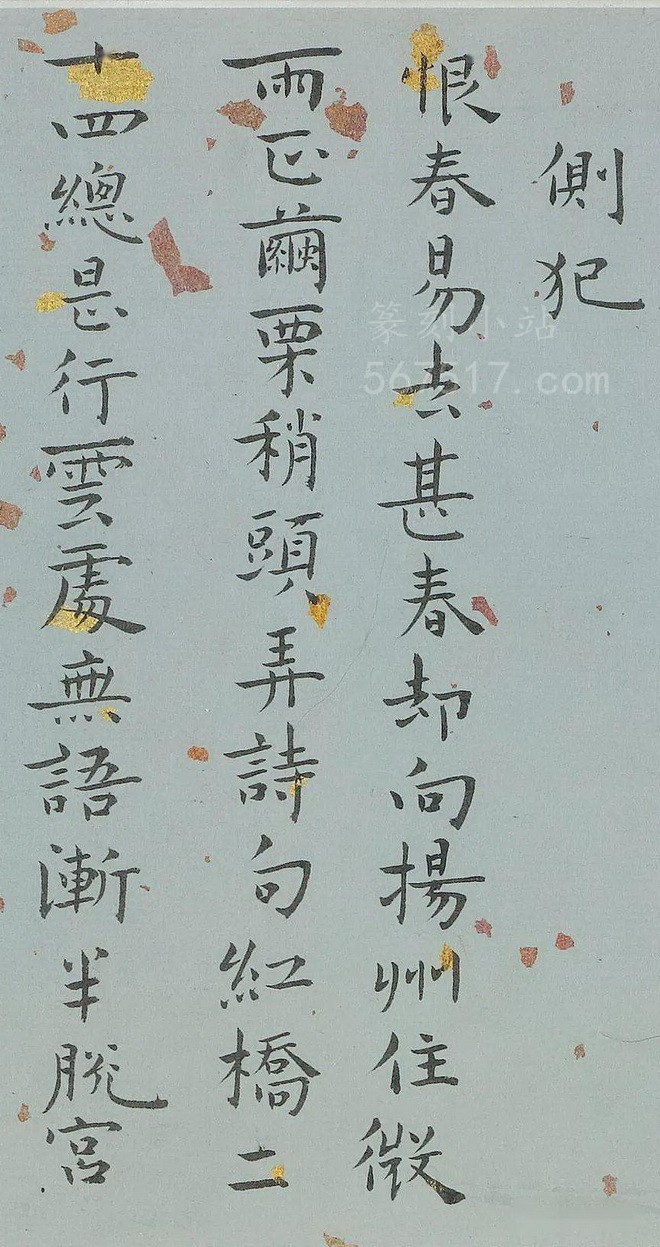 側犯
恨春易去甚春却向揚州住微
雨正繭栗稍頭弄詩句紅橋二
十四總是行雲處無語漸半脫宮
篆刻小站
567517.com